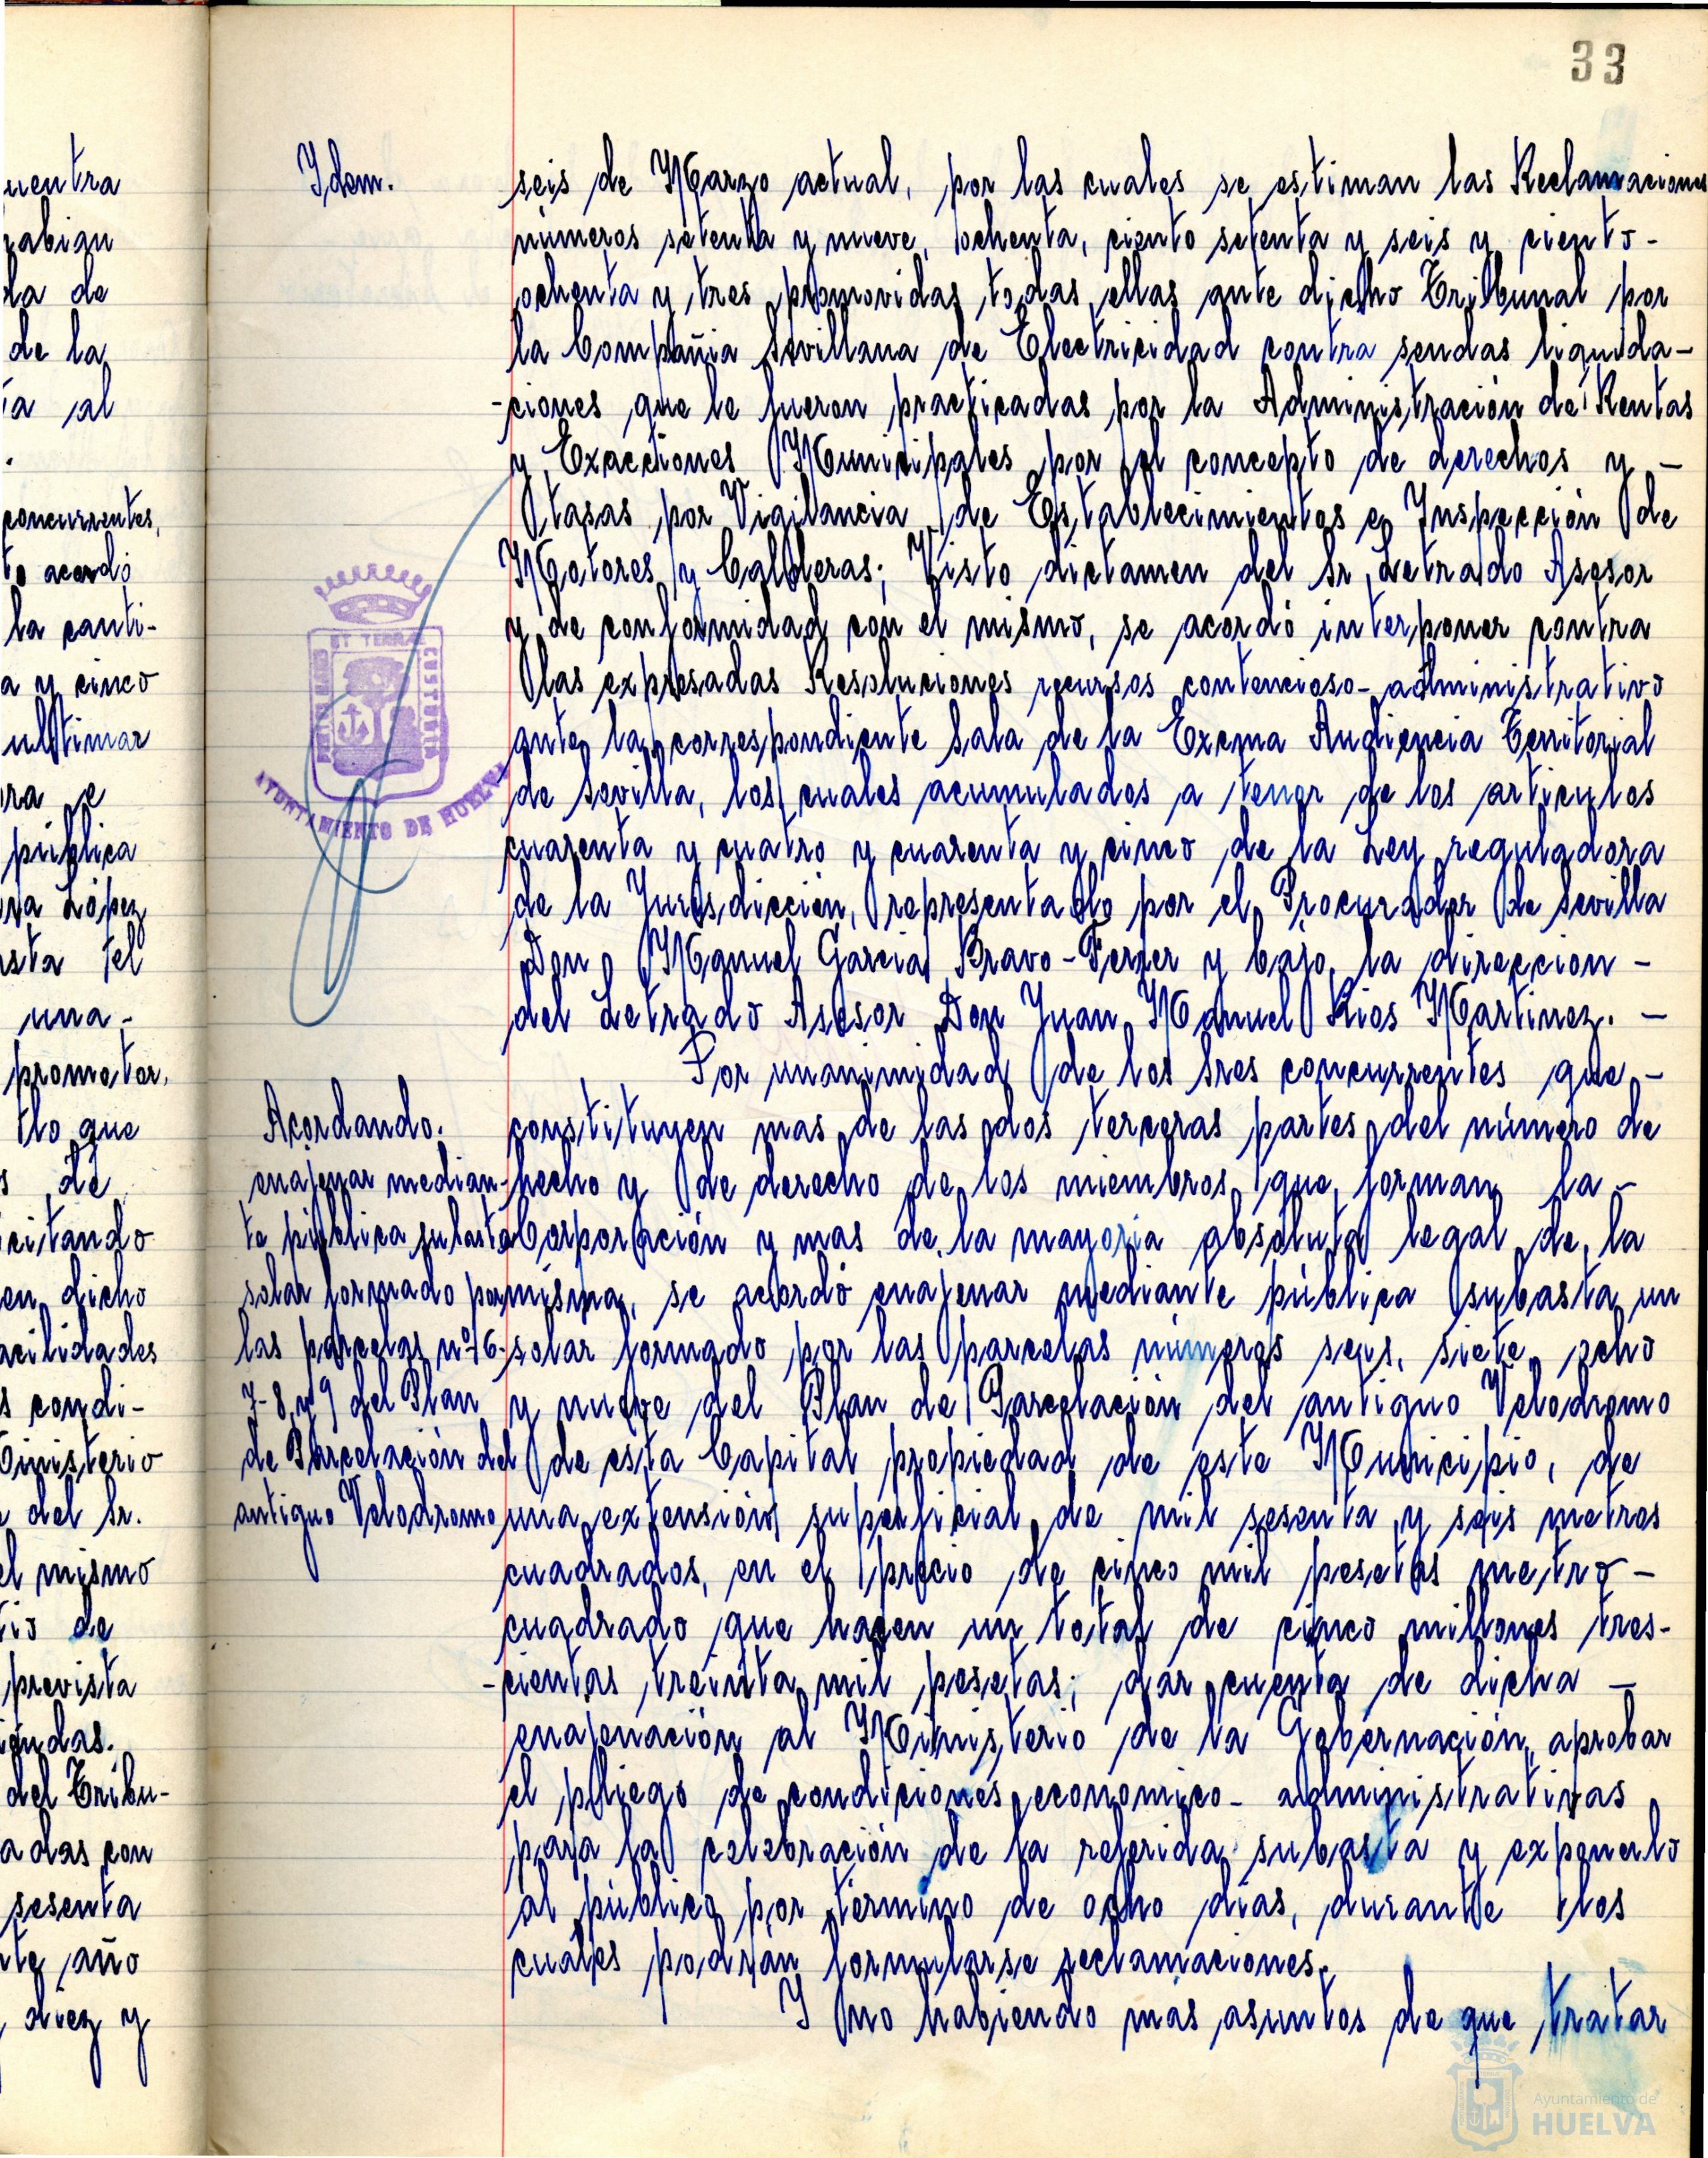 33
Idem.
seis de Marzo actual, por las cuales se estiman las Reclamaciones
números setenta y nueve, ochenta, ciento setenta y seis y ciento-
ochenta y tres promovidas todas ellas ante dicho Tribunal por
la Compañia Sevillana de Electricidad contra sendas liquida-
-ciones que le fueron practicadas por la Administración de Rentas
y Exacciones Municipales por el concepto de derechos y -
tasas por Vigilancia de Establecimientos e Inspección de
Motores y Calderas; Visto dictamen del Sr Letrado Asesor
y de conformidad con el mismo, se acordó interponer contra
las expresadas Resoluciones recursos contencioso-administrativo
ante la correspondiente Sala de la Excma Audiencia Territorial
de Sevilla, los cuales acumulados a tenor de los articulos
cuarenta y cuatro y cuarenta y cinco de la Ley reguladora
de la Jurisdicción, representado por el Procurador de Sevilla
Don Manuel Garcia Bravo-Ferrer y bajo la direccion -
del Letrado Asesor Don Juan Manuel Rios Martinez. -
Por unanimidad de los Sres concurrentes que -
constituyen mas de las dos terceras partes del número de
hecho y de derecho de los miembros que forman la -
Corporación y mas de la mayoria absoluta legal de la
misma, se acordó enajenar mediante pública subasta un
solar formado por las parcelas números seis, siete, ocho
y nueve del Plan de Parcelación del antiguo Velodromo
de esta Capital propiedad de este Municipio, de
una extensión superficial de mil sesenta y seis metros
cuadrados, en el precio de cinco mil pesetas metro -
cuadrado que hacen un total de cinco millones tres-
-cientas treinta mil pesetas; dar cuenta de dicha -
enajenación al Ministerio de la Gobernación, aprobar
el pliego de condiciones economico-administrativas
para la celebración de la referida subasta y exponerlo
al público por término de ocho días, durante los
cuales podran formularse reclamaciones.
Y no habiendo mas asuntos de que tratar
Acordando.
enajenar median-
te pública subasta
solar formado por
las parcelas nº 6-
7-8 y 9 del Plan
de Parcelación del
antiguo Velodromo
PORTUS MARIS ET TERRAE CUSTODIA
AYUNTAMIENTO DE HUELVA
uentra
rabian
la de
de la
ia al
concurrentes,
acordó
la canti-
a y cinco
ultimar
ra e
pública
López
sta el
una -
prometer,
lo que
s de
citando
en dicho
acilidades
s condi-
inisterio
del Sr.
el mismo
io de
prevista
iendas.
del Tribu-
adas con
sesenta
nte año
diez y
Ayuntamiento de
HUELVA